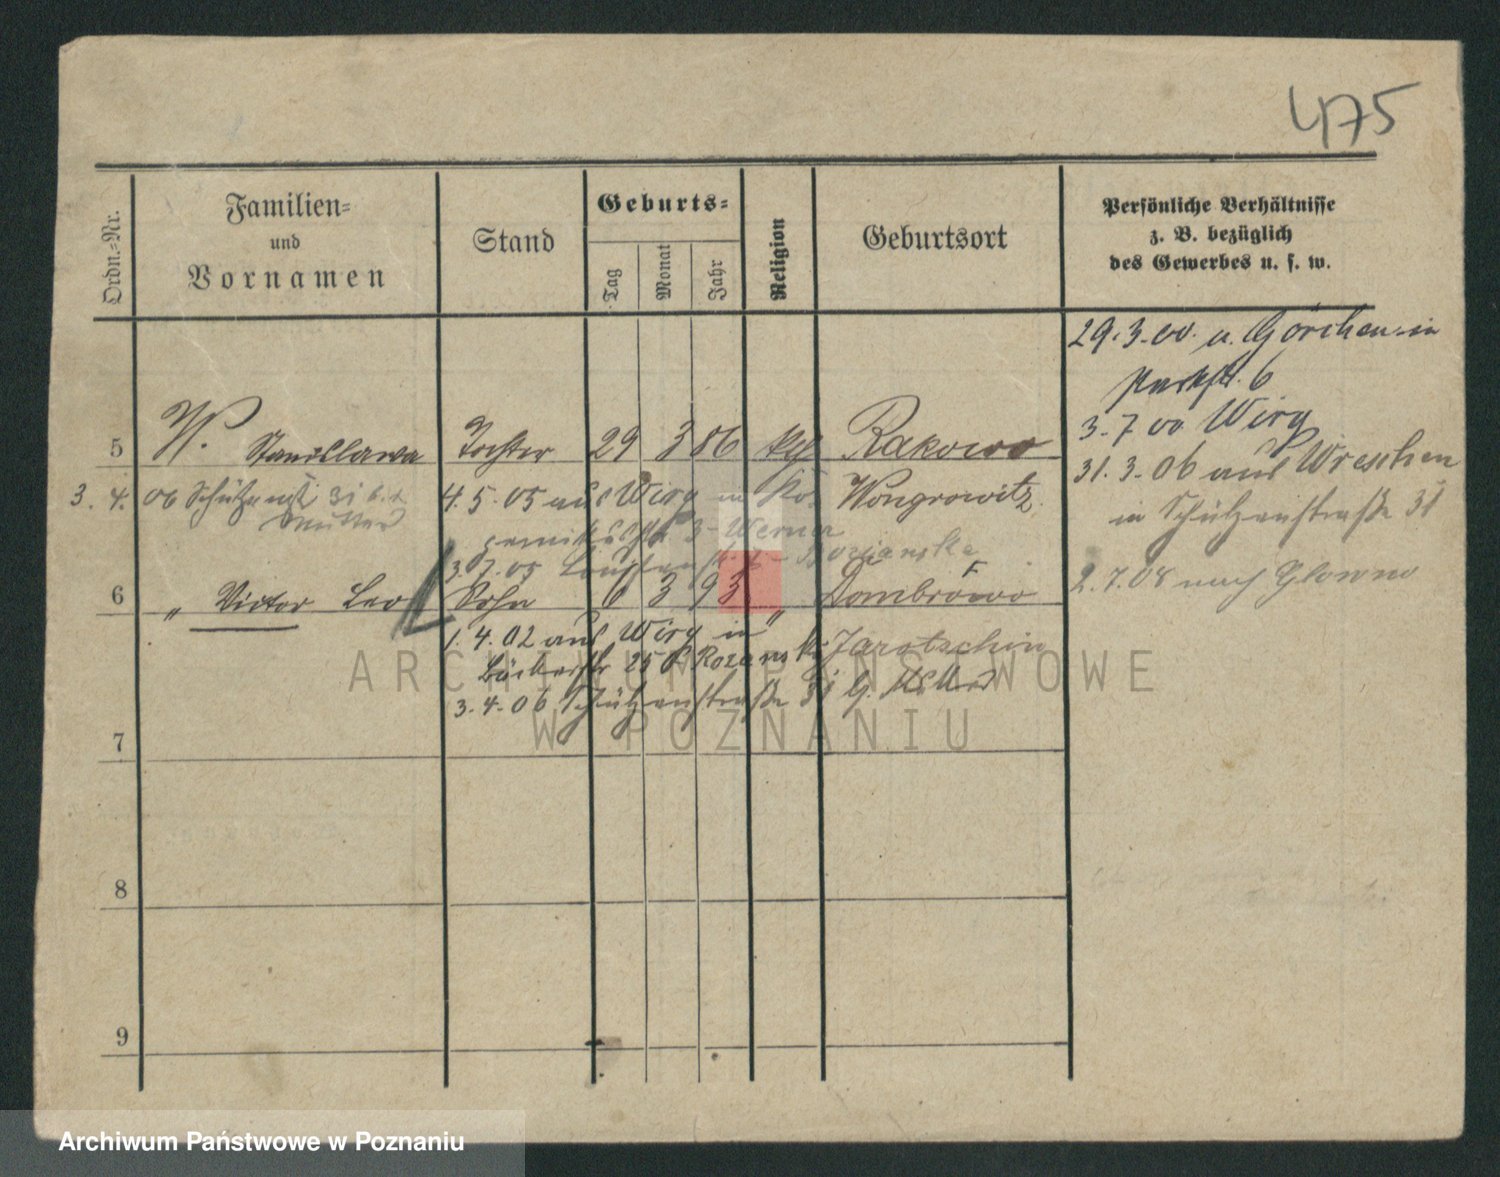 475
Ordn.=Nr.
Familien=
und
Vornamen
Stand
Geburts=
Tag
Monat
Jahr
Religion
Geburtsort
Persönliche Verhältnisse
z. B. bezüglich
des Gewerbes u. s. w.
29.3.00. u. Görchen in
6
3.7.00 Wirg
31.3.06 aus Wreschen
in Schützenstraße 31
2.7.08 nach Glowno
5 W. Stanislawa Tochter 29 3 86 kgl Rakowo
3. 4. 06 Schützenst 31 b. d
Mutter
4.5.05 aus Wirg in Wongrowitz
3 - Werner
3.7.05
6 „ Victor Leo Sohn 6 3 93 „ Dombrowo
1.4.02 aus Wirg in Jarotschin
Bäckerstr 25
3.4.06 Schützenstraße 31 b. Mutter
7
8
9
ARCHIWUM PAŃSTWOWE
W POZNANIU
Archiwum Państwowe w Poznaniu